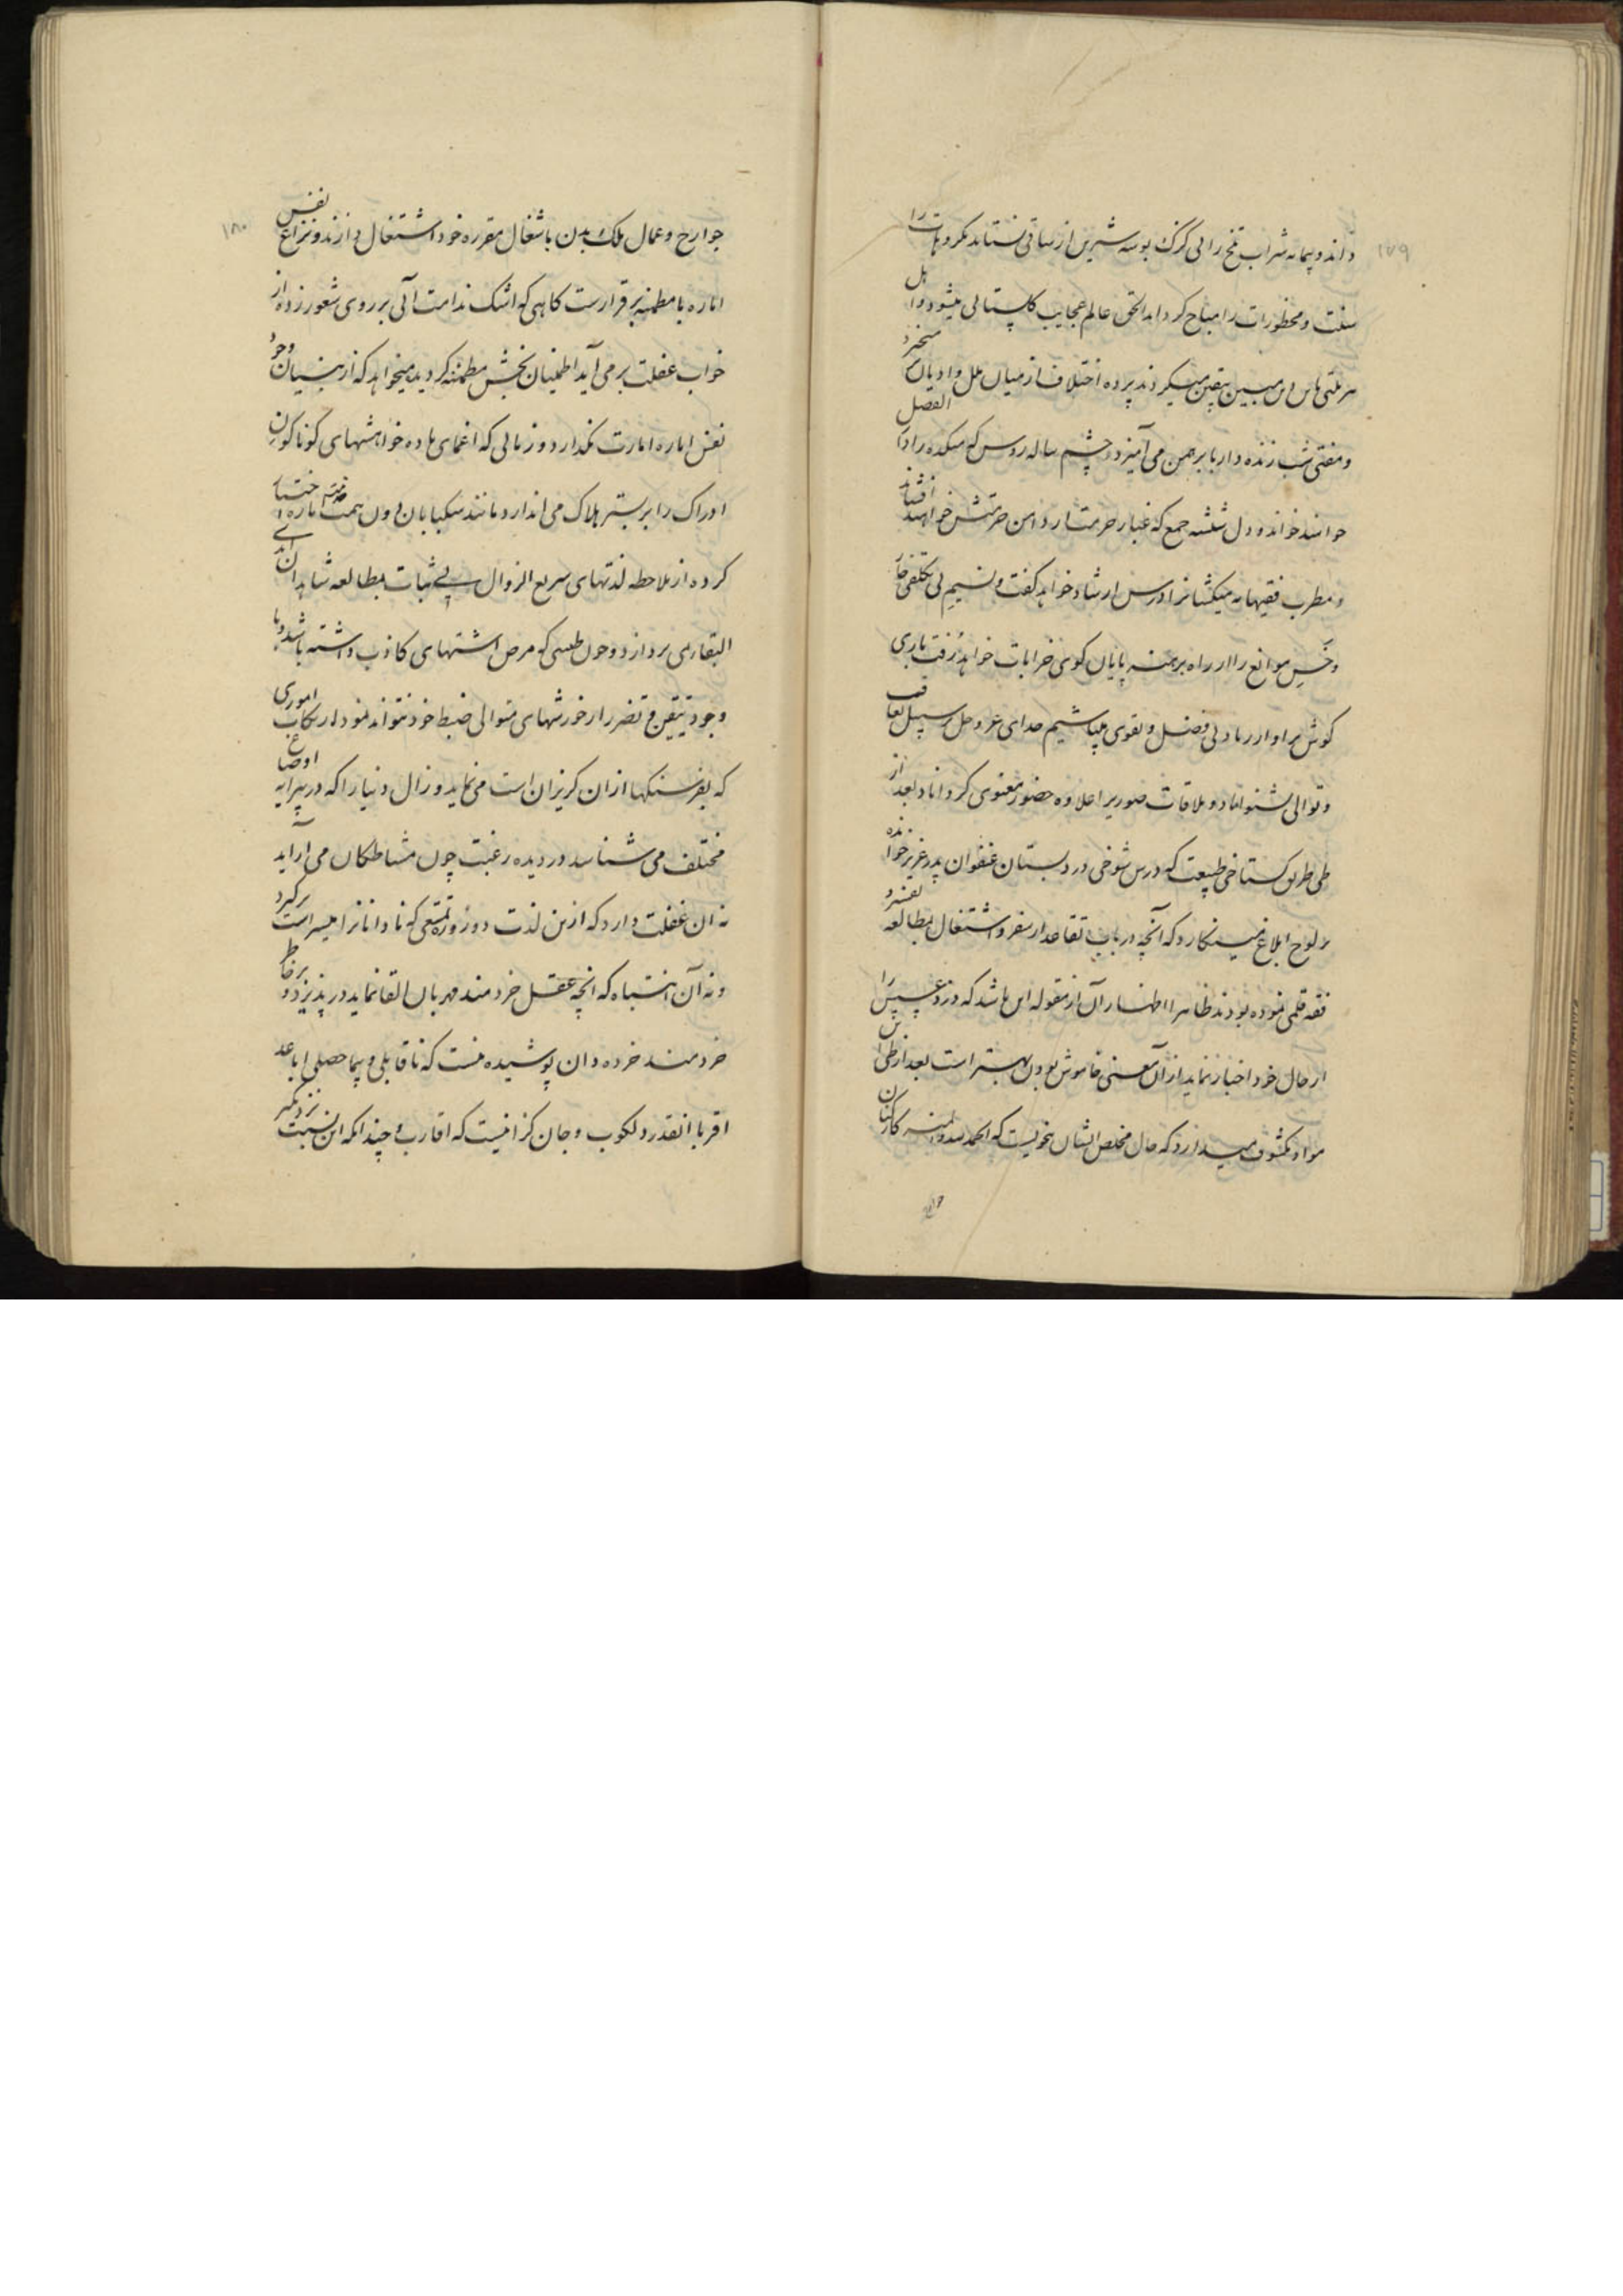 ۱۷۹
داند و پیمانه شراب تلخ را بی گزک بوسه شیرین از ساقی نستاند مکروهات را
سنت و محظورات را مباح گرداند الحق عالم عجایب گلستانی میشود و اهل
هر ملتی دین مبین یقین میگیرند پرده اختلاف از میان ملل و ادیان
و مفتی شب زنده دار با برهمن می آمیزد چشم ساله روس که میکده را دار الفضل
خوانند خواند و دل شیشه جمع که غبار حرمت از دامن حرمتش خواهند افشاند
و مطرب فقیهانه میکشانرا درس ارشاد خواهد گفت و نسیم بی تکلفی خار
و خس موانع را از راه برهنه پایان کوی خرابات خواهد رفت باری
گوش بر آواز زیاد بی فضل و تقوی میباشیم خدای عز و جل بر سبیل تعاقب
و توالی بشنواناد و ملاقات صوری را علاوه حضور معنوی گرداناد بعد از
طی طریق گستاخی طبیعت که درس شوخی در دبستان عنفوان پدر عزیز خوانده
بر لوح ابلاغ مینگارد که آنچه در باب تقاعد از سفر و اشتغال بمطالعه
فقه قلمی نموده بودند ظاهرا اظهار آن از مقوله این باشد که دزد عسس را
از حال خود اخبار نماید از آن معنی خاموش بودن بهتر است بعد از طی این
مواد مکشوف میدارد که حال مخلص ایشان بنحویست که الحمد لله و المنه کارکنان
۱۸۰
جوارح و عمال ملک بدن باشغال مقرره خود اشتغال دارند و نزاع نفس
اماره با مطمئنه برقرارست گاهی که اشک ندامت آبی بر روی شعور زده از
خواب غفلت بر می آید اطمینان بخش مطمئنه گردیده میخواهد که از بنیان وجود
نفس اماره امارت نگذارد و زمانی که اغمای باده خواهشهای گوناگون
ادراک را بر بستر هلاک می اندازد مانند سگبابان دون همت اماره اختیار
کرده از ملاحظه لذتهای سریع الزوال بی ثبات بمطالعه شاهدان ابدی
البقا نمی پردازد و چون طبعی که مرض اشتهای کاذب داشته باشد و با
وجود تیقن تضرر از خورشهای متوالی ضبط خود نتواند نمود ارتکاب اموری
که بفرسنگها از آن گریزان است می نماید و زال دنیا را که در پیرایه اوضاع
مختلف می شناسد در دیده رغبت چون مشاطگان می آراید
نه آن غفلت دارد که ازین لذت دوزوزه تمتعی که نادانانرا میسر است برگیرد
و نه آن انتباه که آنچه عقل خردمند مهربان القا نماید در پذیرد و بر خاطر
خردمند خرده دان پوشیده نیست که ناقابلی و بیحاصلی اباعد
اقربا آنقدر دلکوب و جان گزا نیست که اقارب و چندانکه این نسبت نزدیکتر